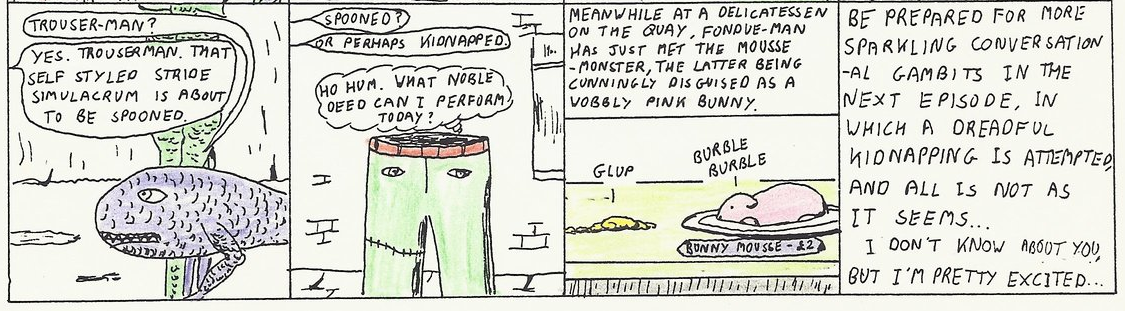 TROUSER-MAN?
YES. TROUSERMAN. THAT
SELF STYLED STRIDE
SIMULACRUM IS ABOUT
TO BE SPOONED.
SPOONED?
OR PERHAPS KIDNAPPED.
HO HUM. WHAT NOBLE
DEED CAN I PERFORM
TODAY?
MEANWHILE AT A DELICATESSEN
ON THE QUAY, FONDUE-MAN
HAS JUST MET THE MOUSSE
-MONSTER, THE LATTER BEING
CUNNINGLY DISGUISED AS A
WOBBLY PINK BUNNY.
GLUP
BURBLE
BURBLE
BUNNY MOUSSE - £2
BE PREPARED FOR MORE
SPARKLING CONVERSATION
-AL GAMBITS IN THE
NEXT EPISODE, IN
WHICH A DREADFUL
KIDNAPPING IS ATTEMPTED,
AND ALL IS NOT AS
IT SEEMS...
I DON'T KNOW ABOUT YOU,
BUT I'M PRETTY EXCITED...